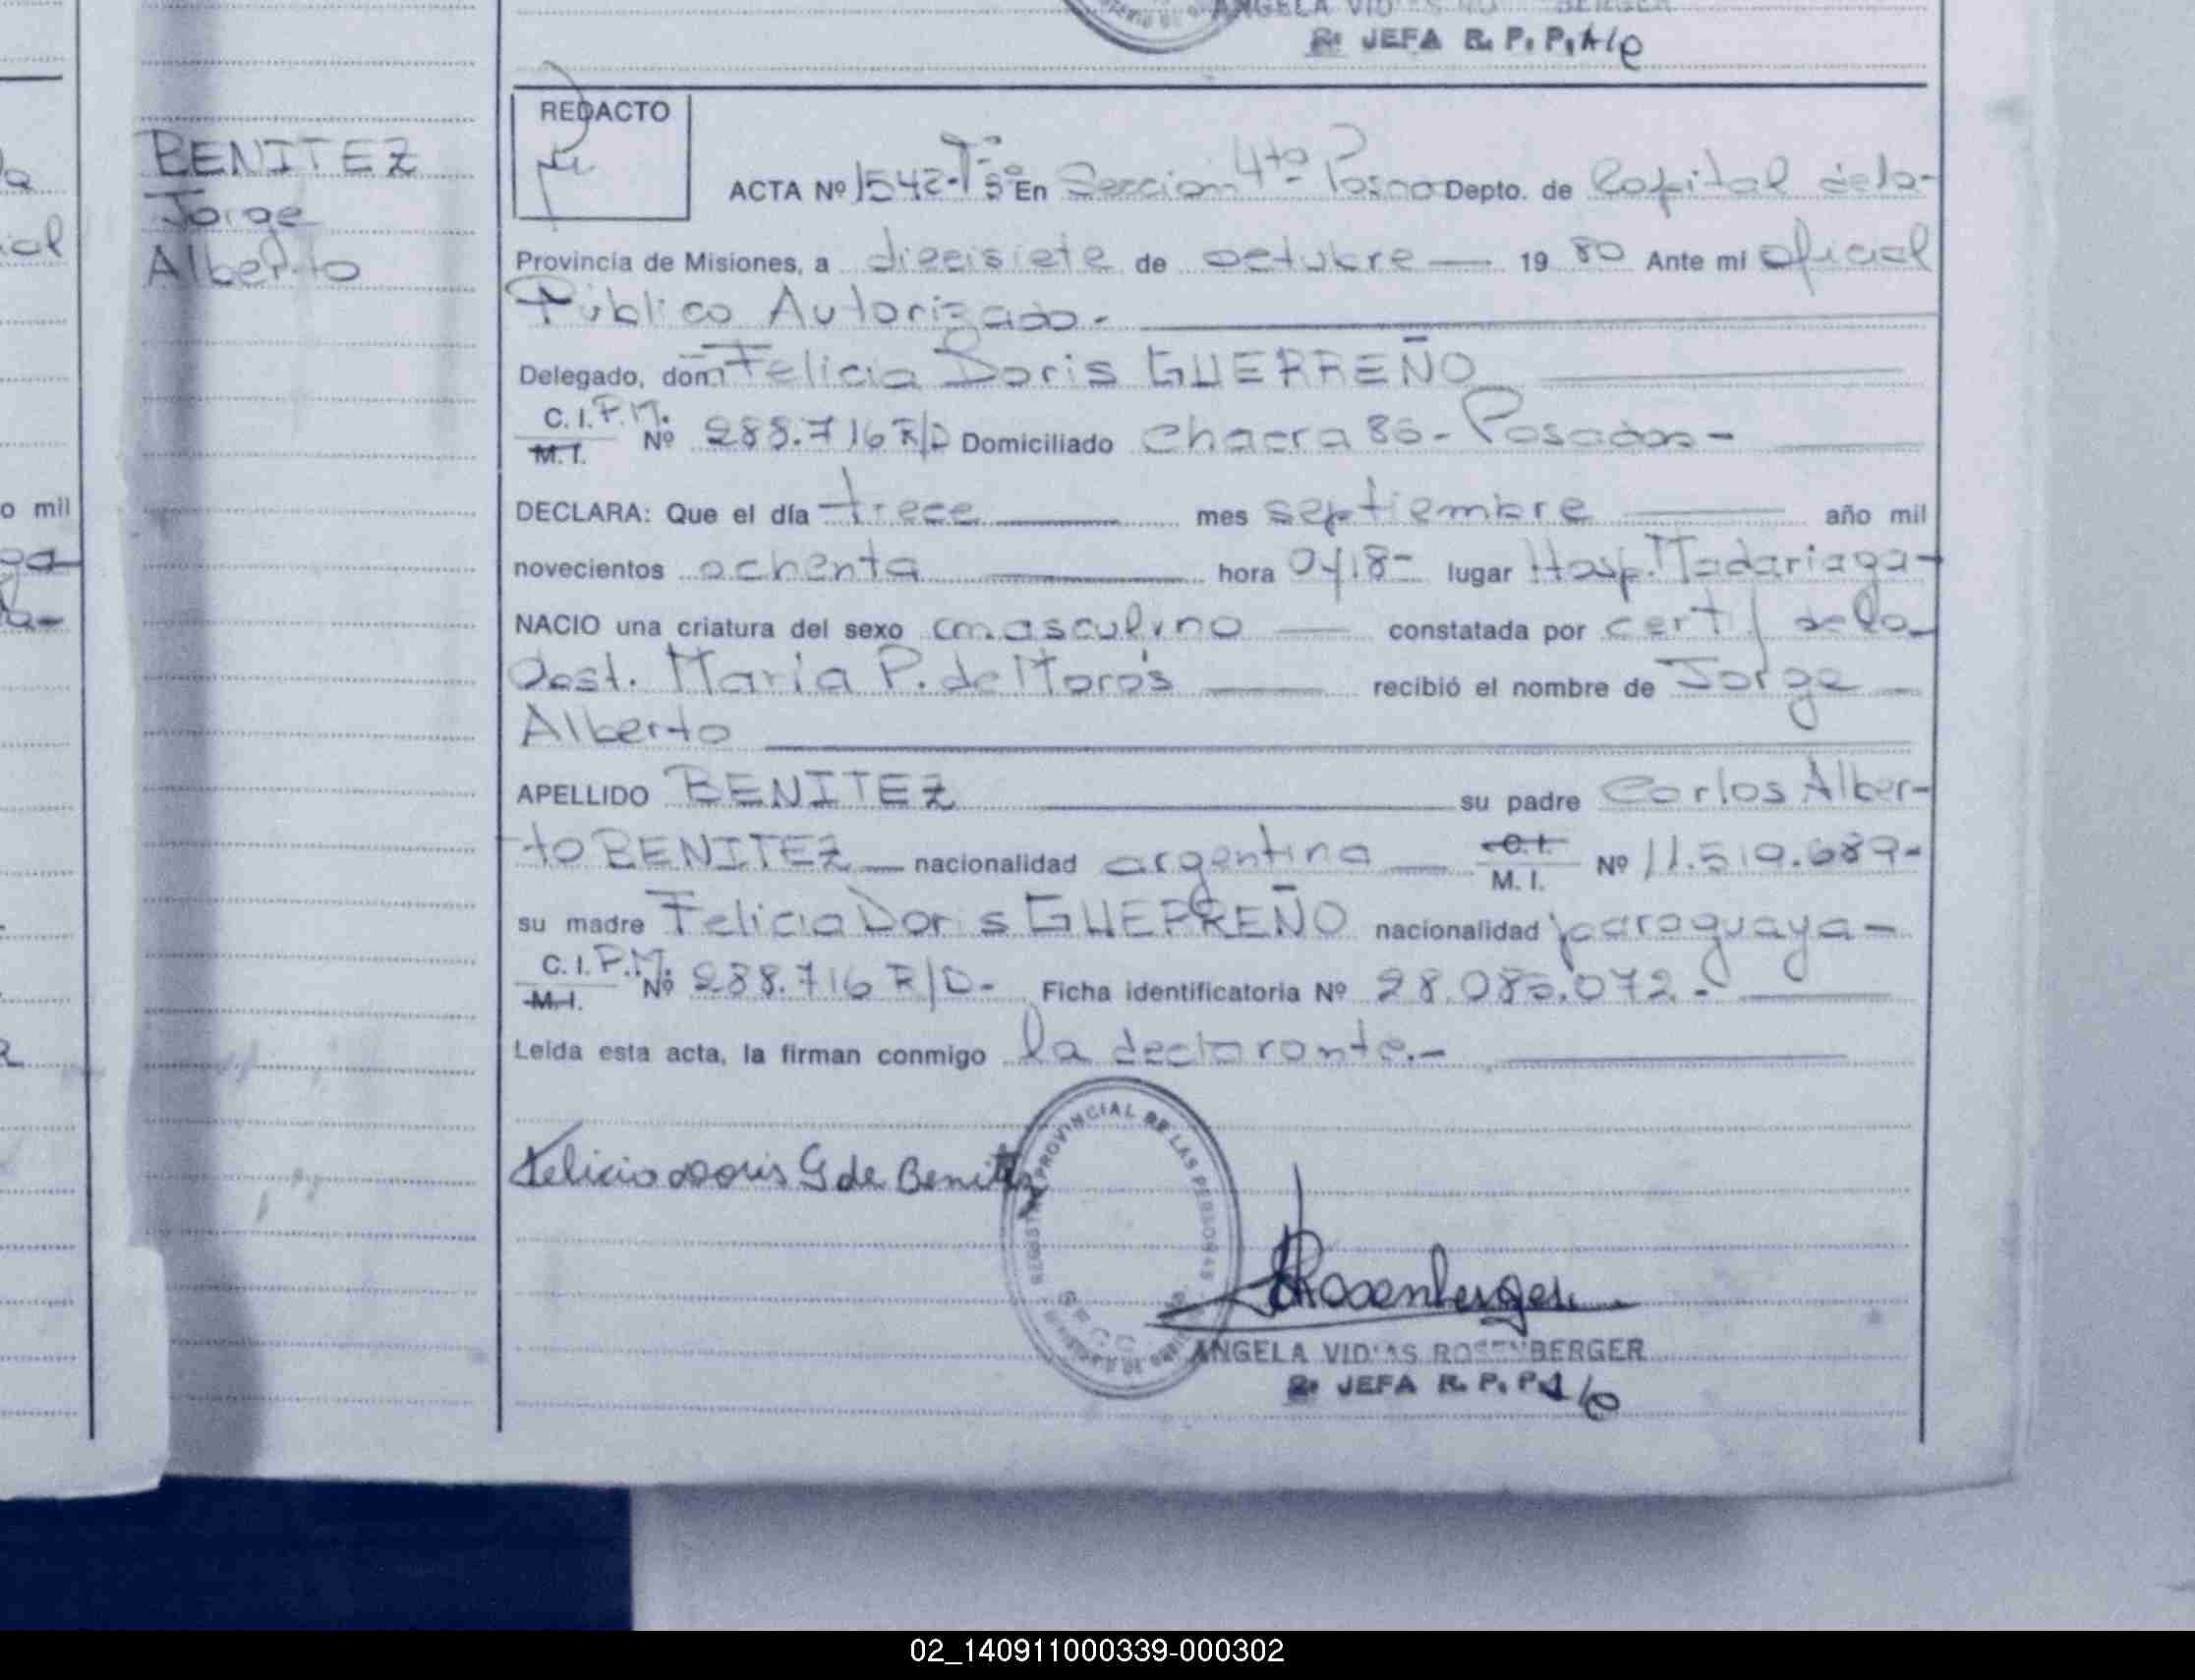 ANGELA
BERGER
JEFA R. P. P.
REDACTO
BENITEZ
Jorge
Alberto
ACTA Nº 1542-Tº 5º En Seccion 4ta Posdas Depto. de Capital de la-
Provincia de Misiones, a diecisiete de octubre — 19 80 Ante mi oficial
Público Autorizado.-
Delegado, don Felicia Doris GUERREÑO
C. I. P.M.
M. I. Nº 288.716 R/D Domiciliado Chacra 86.- Posadas-
DECLARA: Que el día trece mes septiembre año mil
novecientos ochenta hora lugar Hosp. Madariaga-
NACIO una criatura del sexo masculino — constatada por cert/ de la-
Obst. María P. de recibió el nombre de Jorge —
Alberto
APELLIDO BENITEZ su padre Carlos Alber-
to BENITEZ — nacionalidad argentina — C.I.
M. I. Nº 11.519.689-
su madre Felicia Doris GUERREÑO nacionalidad paraguaya-
C. I. P.M.
M. I. Nº 288.716 R/D.- Ficha identificatoria Nº 28.085.072.-
Leida esta acta, la firman conmigo la declarante.-
Felicia Doris G de Benitez
PROVINCIAL DE LAS PERSONAS
Rosenberger
ANGELA ROSENBERGER
JEFA R. P. P.
o mil
02_140911000339-000302